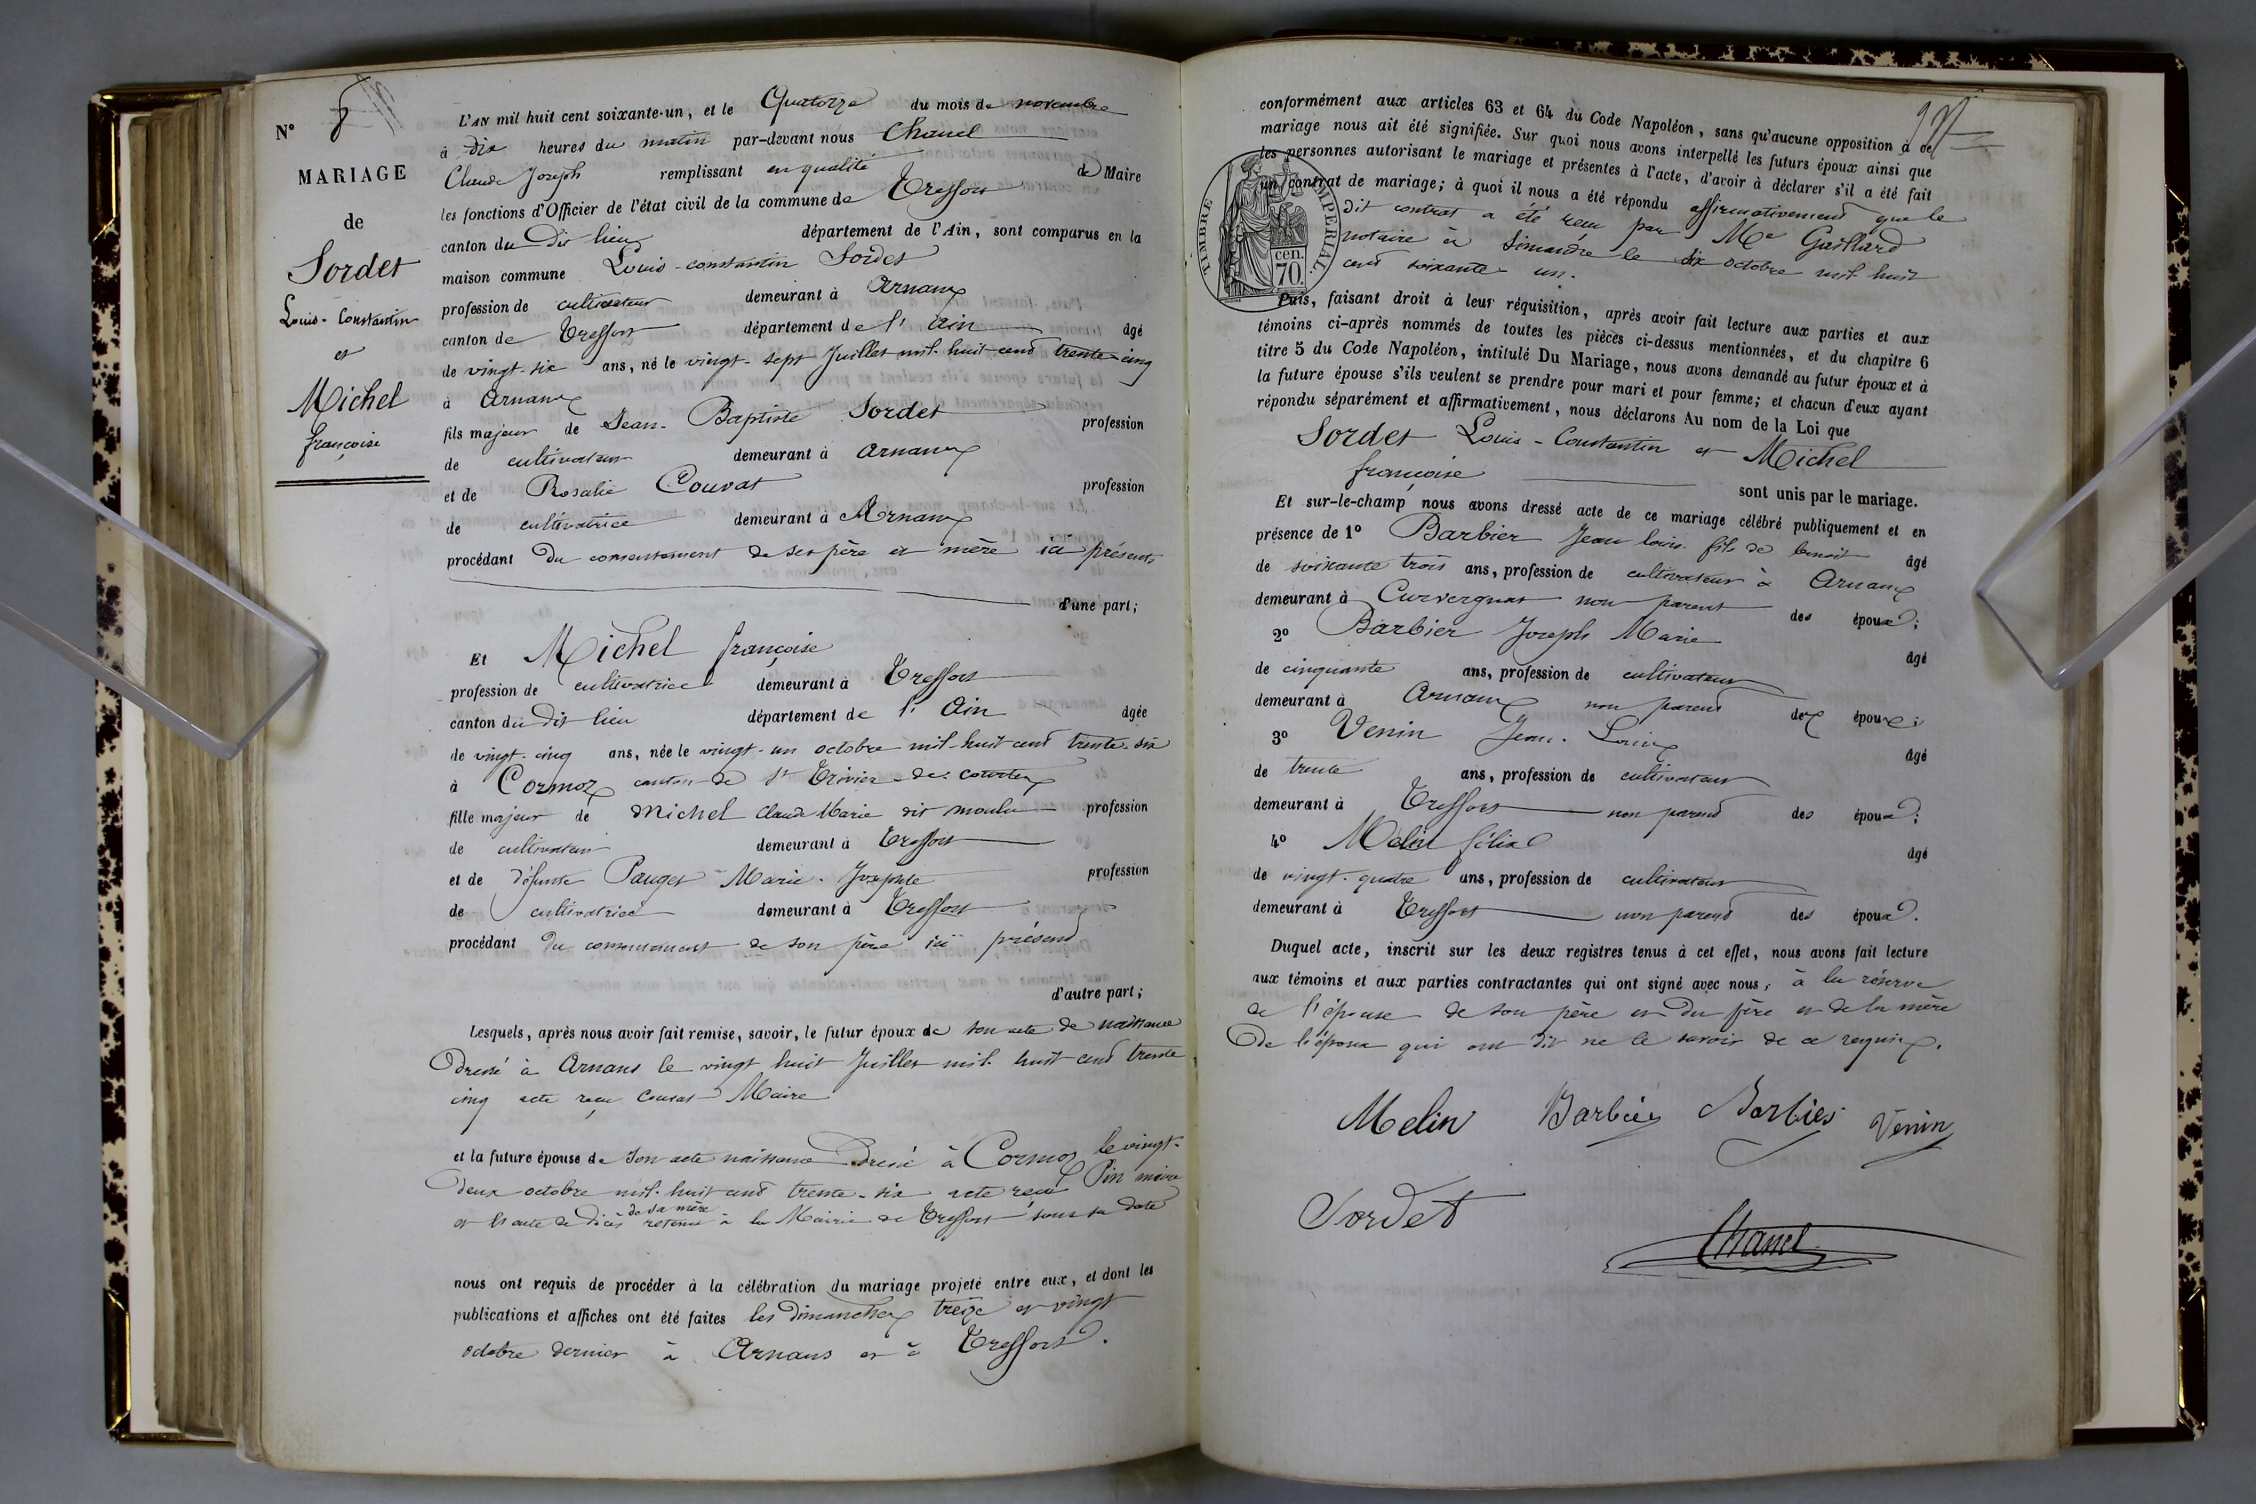 N° 8
MARIAGE
de
Sordet
Louis-Constantin
et
Michel
françoise
L'AN mil huit cent soixante-un, et le Quatorze du mois de novembre
à dix heures du matin par-devant nous Chanel
Claude Joseph remplissant en qualité de Maire
les fonctions d'Officier de l'état civil de la commune de Treffort
canton du dit lieu département de l'Ain, sont comparus en la
maison commune Louis-constantin Sordet
profession de cultivateur demeurant à Arnans
canton de Treffort département de l'Ain âgé
de vingt-six ans, né le vingt-sept Juillet mil-huit-cent trente-cinq
à Arnans
fils majeur de Jean-Baptiste Sordet profession
de cultivateur demeurant à arnans
et de Rosalie Couvat profession
de cultivatrice demeurant à Arnans
procédant du consentement de ses père et mère ici présents
d'une part;
Et Michel françoise
profession de cultivatrice demeurant à Treffort
canton du dit lieu département de l'Ain âgée
de vingt-cinq ans, née le vingt-un octobre mil-huit cent trente-six
à Cormoz canton de St Trivier-de-courtes
fille majeur de Michel Claude Marie dit moulu profession
de cultivateur demeurant à Treffort
et de défunte Pauget Marie-Josephte profession
de cultivatrice demeurant à Treffort
procédant du consentement de son père ici présent
d'autre part;
Lesquels, après nous avoir fait remise, savoir, le futur époux de son acte de naissance
dressé à Arnans le vingt huit Juillet mil huit cent trente
cinq acte reçu Couvat Maire
et la future épouse de son acte naissance dressé à Cormoz le vingt-
deux octobre mil-huit cent trente-six acte reçu Pin maire
et l'acte de décès de sa mère retenu à la Mairie de Treffort sous sa date
nous ont requis de procéder à la célébration du mariage projeté entre eux, et dont les
publications et affiches ont été faites les dimanches treize et vingt
octobre dernier à Arnans et à Treffort.
conformément aux articles 63 et 64 du Code Napoléon, sans qu'aucune opposition à ce
mariage nous ait été signifiée. Sur quoi nous avons interpellé les futurs époux ainsi que
les personnes autorisant le mariage et présentes à l'acte, d'avoir à déclarer s'il a été fait
un contrat de mariage; à quoi il nous a été répondu affirmativement que le
dit contrat a été reçu par Me Gaillard
notaire à Simandre le dix octobre mil huit
cent soixante-un.
TIMBRE IMPERIAL.
cen. 70.
Puis, faisant droit à leur réquisition, après avoir fait lecture aux parties et aux
témoins ci-après nommés de toutes les pièces ci-dessus mentionnées, et du chapitre 6
titre 5 du Code Napoléon, intitulé Du Mariage, nous avons demandé au futur époux et à
la future épouse s'ils veulent se prendre pour mari et pour femme; et chacun d'eux ayant
répondu séparément et affirmativement, nous déclarons Au nom de la Loi que
Sordet Louis-Constantin et Michel
françoise sont unis par le mariage.
Et sur-le-champ nous avons dressé acte de ce mariage célébré publiquement et en
présence de 1° Barbier Jean louis fils de benoit âgé
de soixante trois ans, profession de cultivateur à Arnans
demeurant à Curvergnat non parent des époux;
2° Barbier Joseph Marie âgé
de cinquante ans, profession de cultivateur
demeurant à Arnans non parent des époux;
3° Venin Jean-Louis âgé
de trente ans, profession de cultivateur
demeurant à Treffort non parent des époux;
4° Melin félix âgé
de vingt-quatre ans, profession de cultivateur
demeurant à Treffort non parent des époux.
Duquel acte, inscrit sur les deux registres tenus à cet effet, nous avons fait lecture
aux témoins et aux parties contractantes qui ont signé avec nous, à la réserve
de l'épouse de son père et du père et de la mère
de l'époux qui ont dit ne le savoir de ce requis.
Melin Barbier Barbier Venin
Sordet
Chanel